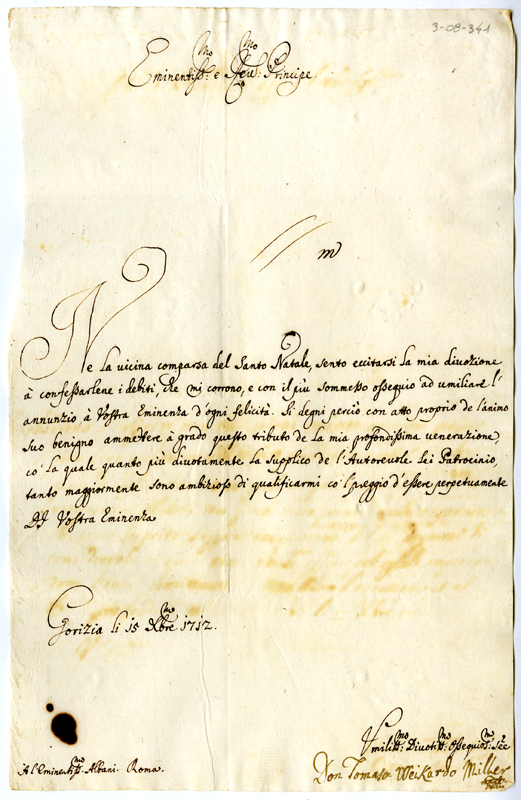 3-08-341
Eminentiss:mo e Rev:mo Principe.
Ne la vicina comparsa del Santo Natale, sento eccitarsi la mia divozione
à confessarlene i debiti, che mi corrono, e con il più sommesso ossequio ad umiliare l'
annunzio à Vostra Eminenza d'ogni felicità. Si degni perciò con atto proprio de l'animo
suo benigno ammettere à grado questo tributo de la mia profondissima venerazione,
co' la quale quanto più divotamente la supplico de l'Autorevole Lei Patrocinio,
tanto maggiormente sono ambizioso di qualificarmi co' l preggio d'essere perpetuamente
Di Vostra Eminenza
Gorizia li 15 Xbre 1712.
Umiliss:mo Divotiss:mo Ossequios:mo
Al Eminentiss:mo Albani. Roma.
Don Tomaso Weikardo Miller